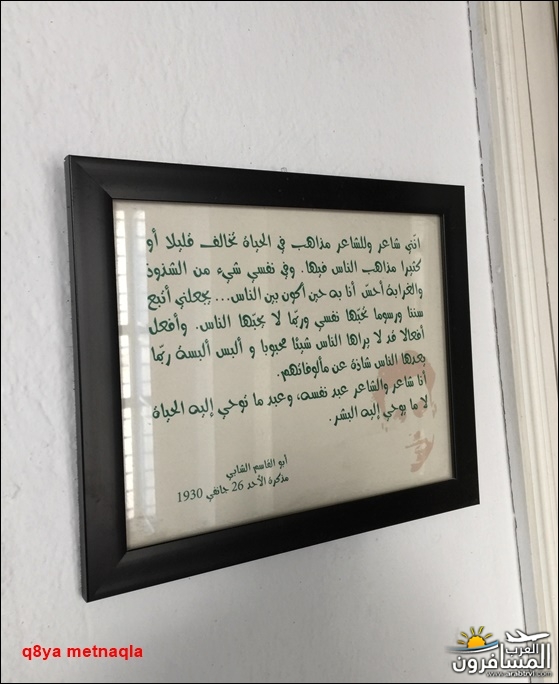 انّني شاعر وللشاعر مذاهب في الحياة تخالف قليلا أو
كثيرا مذاهب الناس فيها. وفي نفسي شيء من الشذوذ
والغرابة أحسّ أنا به حين أكون بين الناس... يجعلني أتبع
سننا ورسوما تحبّها نفسي وربّما لا يحبّها الناس. وأفعل
أفعالا قد لا يراها الناس شيئا محبوبا و ألبس ألبسة ربّما
يعدها الناس شاذة عن مألوفاتهم.
أنا شاعر والشاعر عبد نفسه، وعبد ما توحي إليه الحياة
لا ما يوحي إليه البشر.
أبو القاسم الشابي
مذكرة الأحد 26 جانفي 1930
q8ya metnaqla
العرب
المسافرون
www.arabtrvl.com